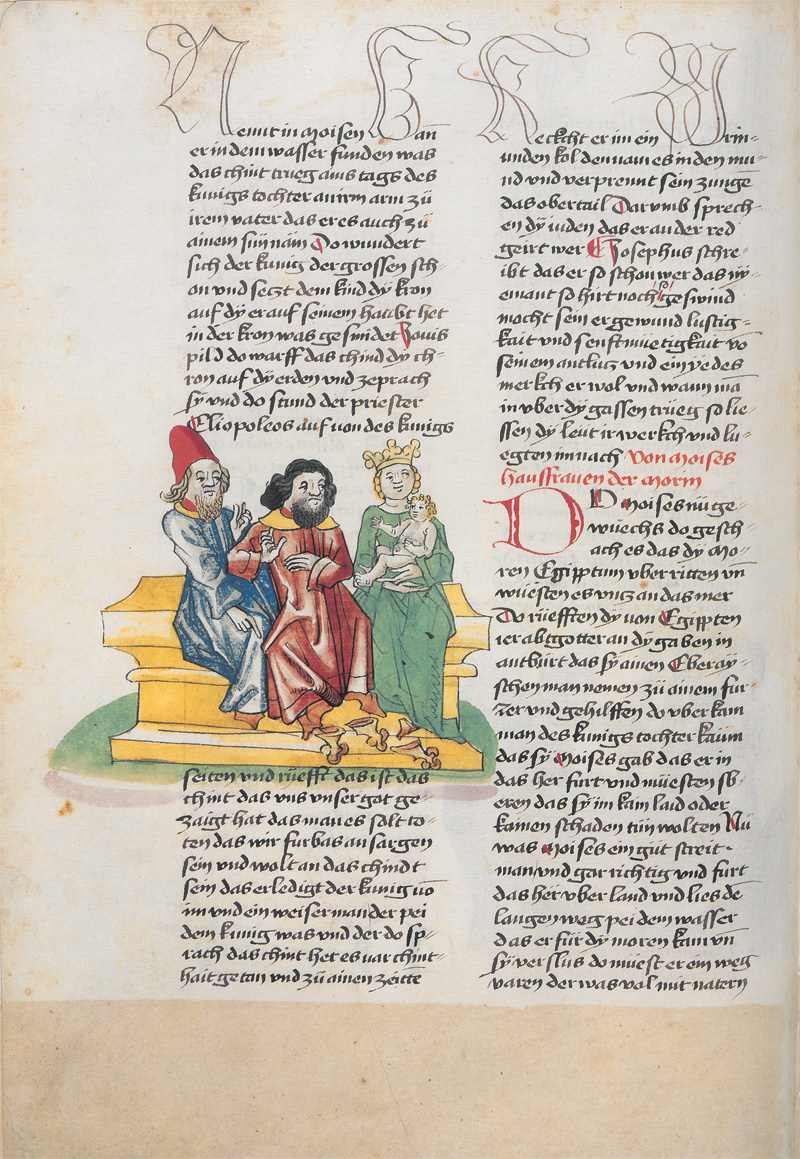 Nennt in moisen Wan
er in dem wasser funden was
das chint trueg ains tags des
kunigs tochter an irm arm zü
irem vater das er es auch zü
ainem sün näm Do wundert
sich der kunig der grossen sch-
on und seczt dem kind dÿ kron
auf dÿ er auf seinem haubt het
in der kron was gesmidet Jovis
pild do warff das chind dÿ ch-
ron auf dÿ erden und zeprach
sÿ und do stund der priester
Eliopoleos auf von des kunigs
seiten und rüefft das ist das
chint das uns unser got ge-
zaigt hat das man es solt to-
ten das wir furbas an sorgen
sein und wolt an das chindt
sein das erledigt der kunig vō
im und ein weiser man der pei
dem kunig was und der do sp-
rach das chint het es var chint-
hait getan und zü ainen zeitte
Reckcht er im ein Prin-
unden kol den nam es in den mu-
nd und verprennt sein zunge
das obertail Darumb sprech-
en dÿ juden das er an der red
geirt wer Josephus schre-
ibt das er so schon wer das nÿ-
emant so hirt noch so geswind
mocht sein er gewund lustig-
kait und senftmuetigkait vō
seinem antlucz und ein yedes
merkch er wol und wann mā
in uber dÿ gassen trüeg so lie-
ssen dÿ leut ir werkch und lu-
egten im nach Von moises
hausfrauen der morin
Do moises nü ge-
wüechs do gesch-
ach es das dÿ mo-
ren Egipptum uberritten vn̄
wuesten es uncz an das mer
Do rüefften dÿ von Egippten
ier abtgotter an dÿ gaben in
antburt das sÿ ainen Ebera-
schen man nemen zü ainem fur-
rer und gehilffen do uberkam
man des kunigs tochter kaum
das sÿ moises gab das er in
das her furt und müesten sb-
eren das sÿ im kain laid oder
kainen schaden tün wolten Nü
was moises ein güt streit-
man und gar richtig und furt
das her uber land und lies dē
langen weg pei dem wasser
das er für dÿ moren kam vn̄
sÿ verslus do müest er ein weg
varen der was vol mit natern